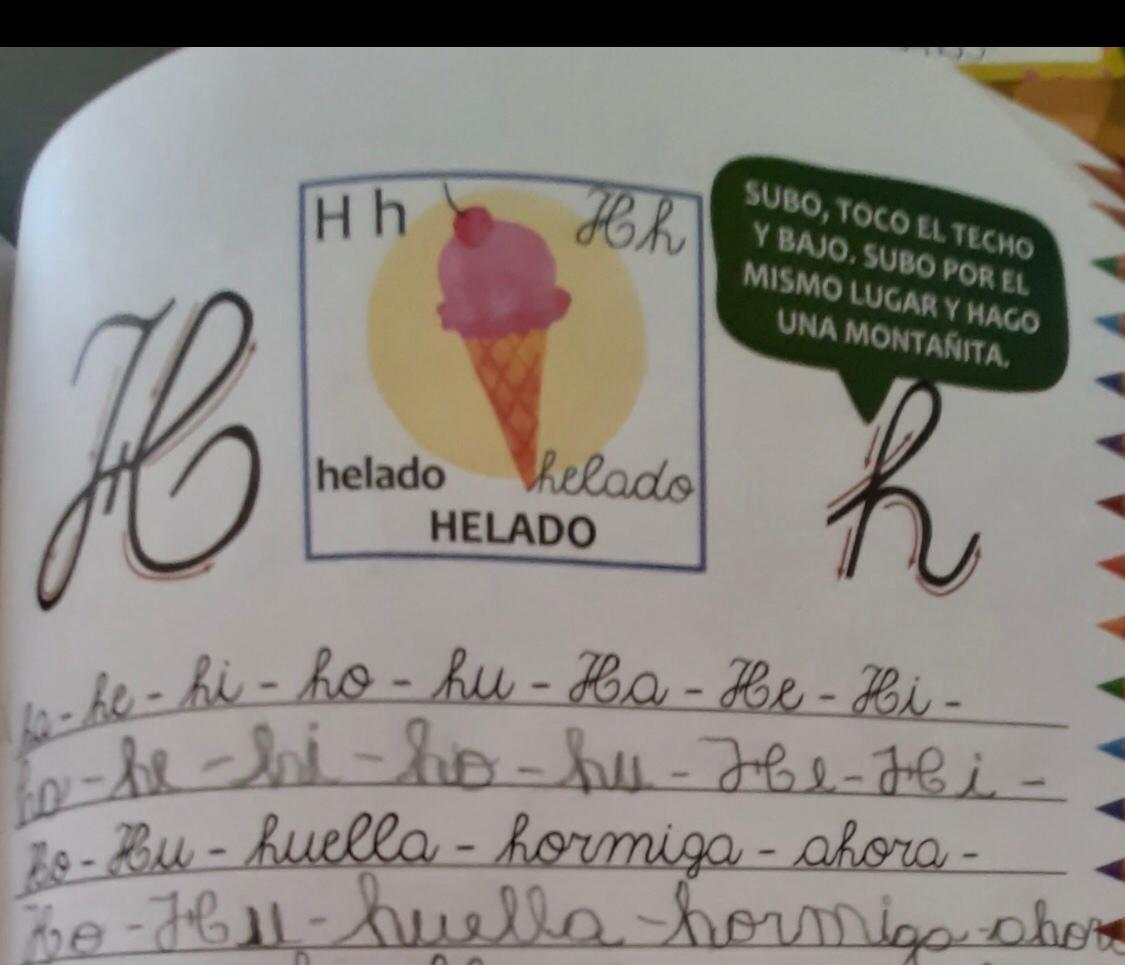 H h
Hh
SUBO, TOCO EL TECHO
Y BAJO. SUBO POR EL
MISMO LUGAR Y HAGO
UNA MONTAÑITA.
H
h
helado
helado
HELADO
ha - he - hi - ho - hu - Ha - He - Hi -
ha - he - hi - ho - hu - He - Hi -
Ho - Hu - huella - hormiga - ahora -
Ho - Hu - huella - hormiga - ahor